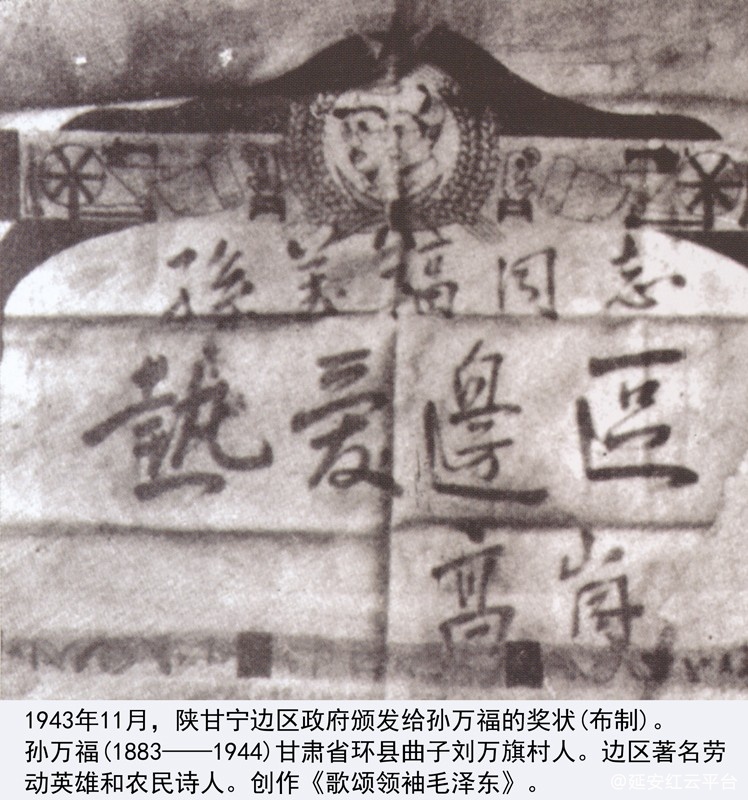 孫萬福同志
熱爱邊區
高崗
1943年11月，陕甘宁边区政府颁发给孙万福的奖状(布制)。
孙万福(1883——1944)甘肃省环县曲子刘万旗村人。边区著名劳
动英雄和农民诗人。创作《歌颂领袖毛泽东》。
@延安红云平台